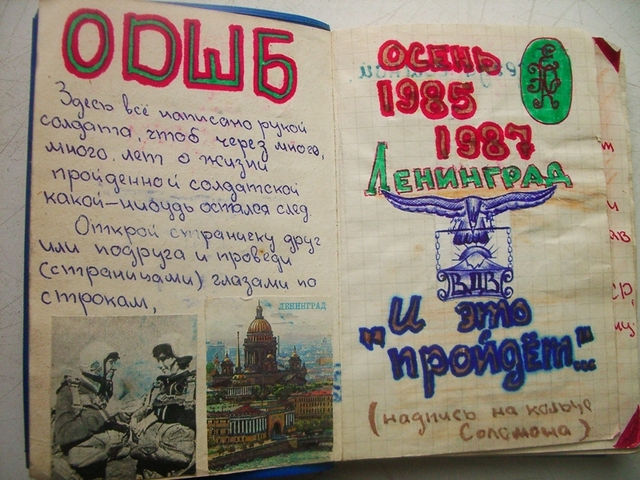 ОДШБ
Здесь всё написано рукой
солдата, чтоб через много,
много лет о жизни
пройденной солдатской
какой-нибудь остался след.
Открой страничку друг
или подруга и проведи
(страницами) глазами по
строкам,
ЛЕНИНГРАД
ОСЕНЬ
1985
1987
ЛЕНИНГРАД
ВДВ
"И это
пройдёт..."
(надпись на кольце
Соломона)